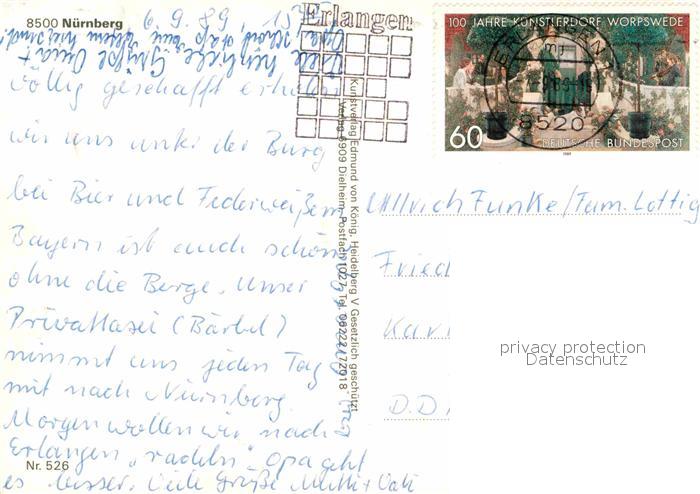 8500 Nürnberg
6.9.89, 15
Völlig geschafft erholen
wir uns unter der Burg
bei Bier und Federweißem
Bayern ist auch schön
ohne die Berge. Unser
Privattaxi (Bärbel)
nimmt uns jeden Tag
mit nach Nürnberg.
Morgen wollen wir nach
Erlangen "radeln" Opa geht
es besser. Viele Grüße Mutti + Vati
Nr. 526
Kunstverlag Edmund von König, Heidelberg V Gesetzlich geschützt
Verlag 6909 Dielheim, Postfach 1027, Tel. 06222/72018
Erlangen
100 JAHRE KÜNSTLERDORF WORPSWEDE
ERLANGEN
8520
60
DEUTSCHE BUNDESPOST
1989
Ullrich Funke/Fam. Lottig
Fried
Karl
D.D.
privacy protection
Datenschutz